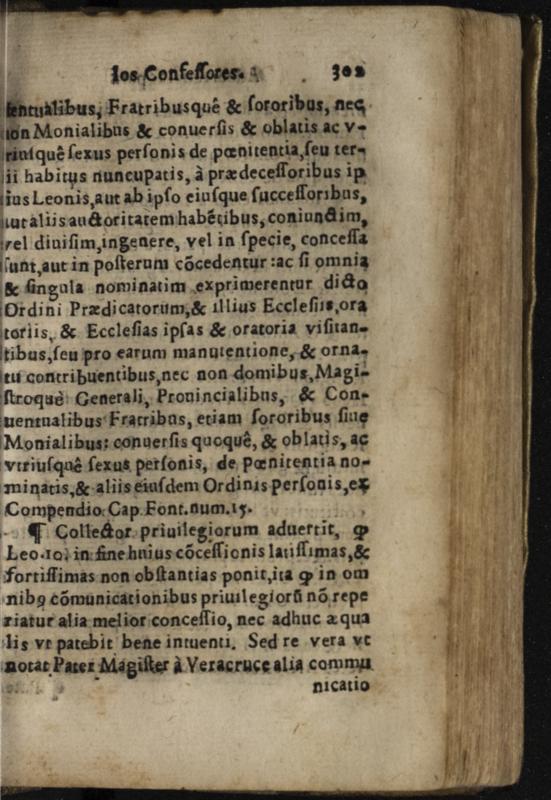 los Confeſſores. 302
uentualibus, Fratribusquê & ſororibus, nec
non Monialibus & conuerſis & oblatis ac v-
triuſquê ſexus perſonis de pœnitentia, ſeu ter-
tii habitus nuncupatis, à prædeceſſoribus ip
ſius Leonis, aut ab ipſo eiuſque ſucceſſoribus,
aut aliis auctoritatem habētibus, coniunctim,
vel diuiſim, ingenere, vel in ſpecie, conceſſa
ſunt, aut in poſterum cōcedentur: ac ſi omnia
& ſingula nominatim exprimerentur dicto
Ordini Prædicatorum, & illius Eccleſiis, ora
toriis, & Eccleſias ipſas & oratoria viſitan-
tibus, ſeu pro earum manutentione, & orna-
tu contribuentibus, nec non domibus, Magi-
ſtroquê Generali, Prouincialibus, & Con-
uentualibus Fratribus, etiam ſororibus ſiue
Monialibus: conuerſis quoquê, & oblatis, ac
vtriuſquê ſexus perſonis, de pœnitentia no-
minatis, & aliis eiuſdem Ordinis perſonis, ex
Compendio Cap. Font. num. 15.
¶ Collector priuilegiorum aduertit, ꝙ
Leo. 10. in fine huius cōceſſionis latiſſimas, &
fortiſſimas non obſtantias ponit, ita ꝙ in om
nibꝯ cōmunicationibus priuilegiorū nō repe
riatur alia melior conceſſio, nec adhuc æqua
lis vt patebit bene intuenti. Sed re vera vt
notat Pater Magiſter à Veracruce alia commu
nicatio